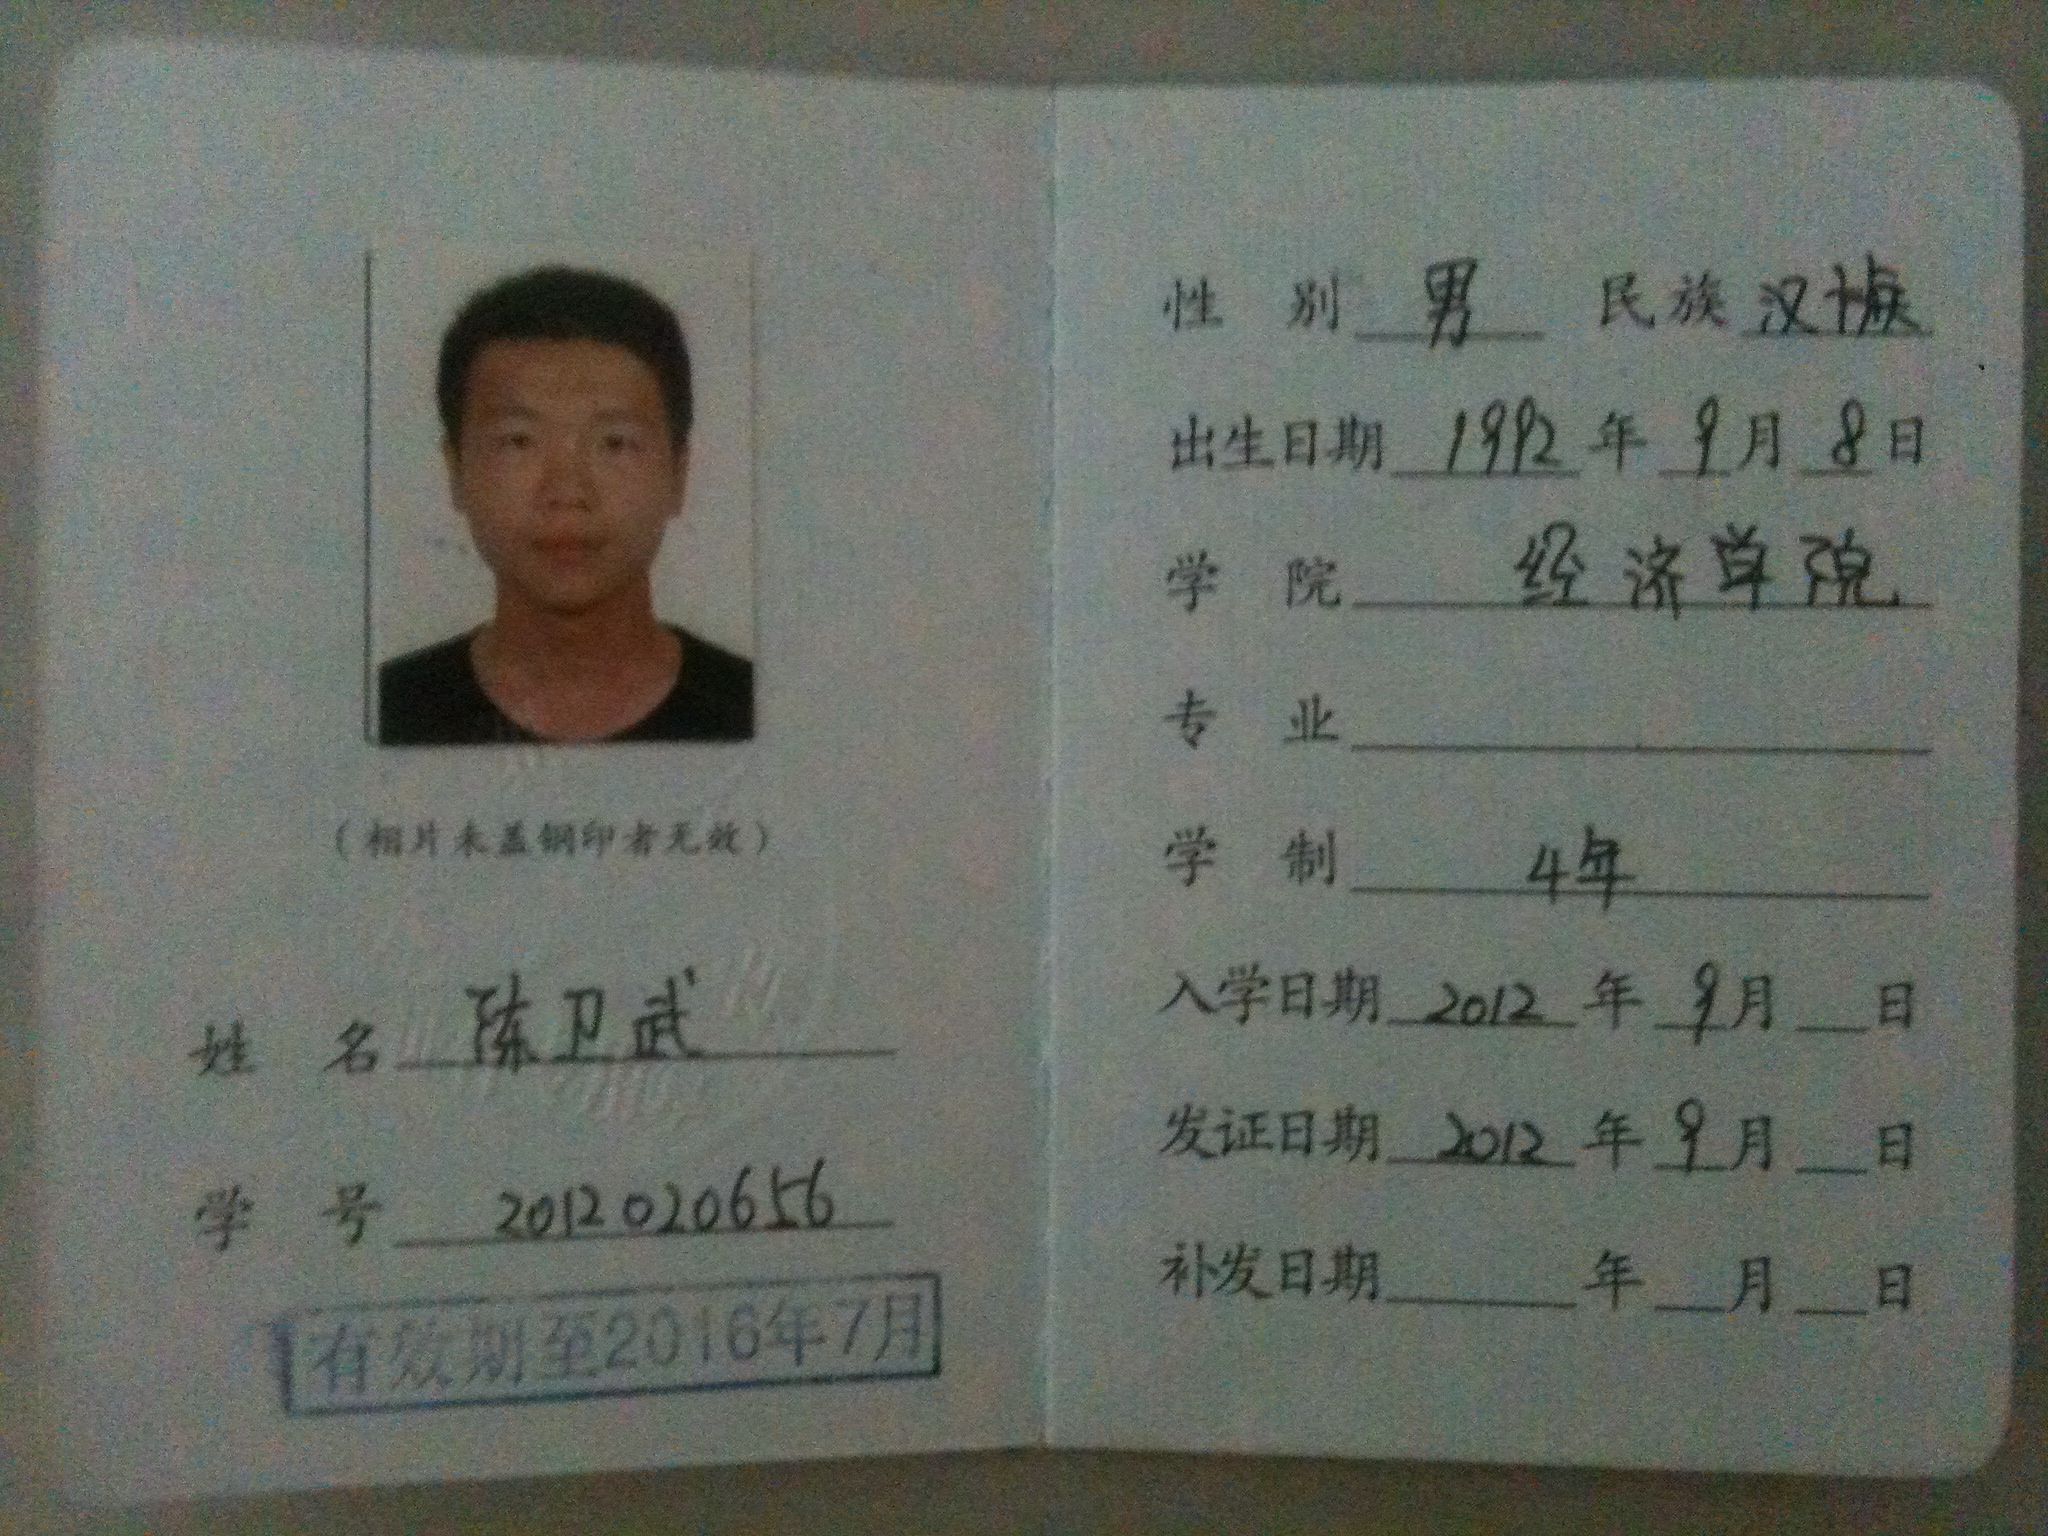 (相片未盖钢印者无效)
姓 名 陈卫武
学 号 2012020656
有效期至2016年7月
性 别 男 民 族 汉族
出生日期 1992 年 9 月 8 日
学 院 经济学院
专 业
学 制 4年
入学日期 2012 年 9 月 日
发证日期 2012 年 9 月 日
补发日期 年 月 日